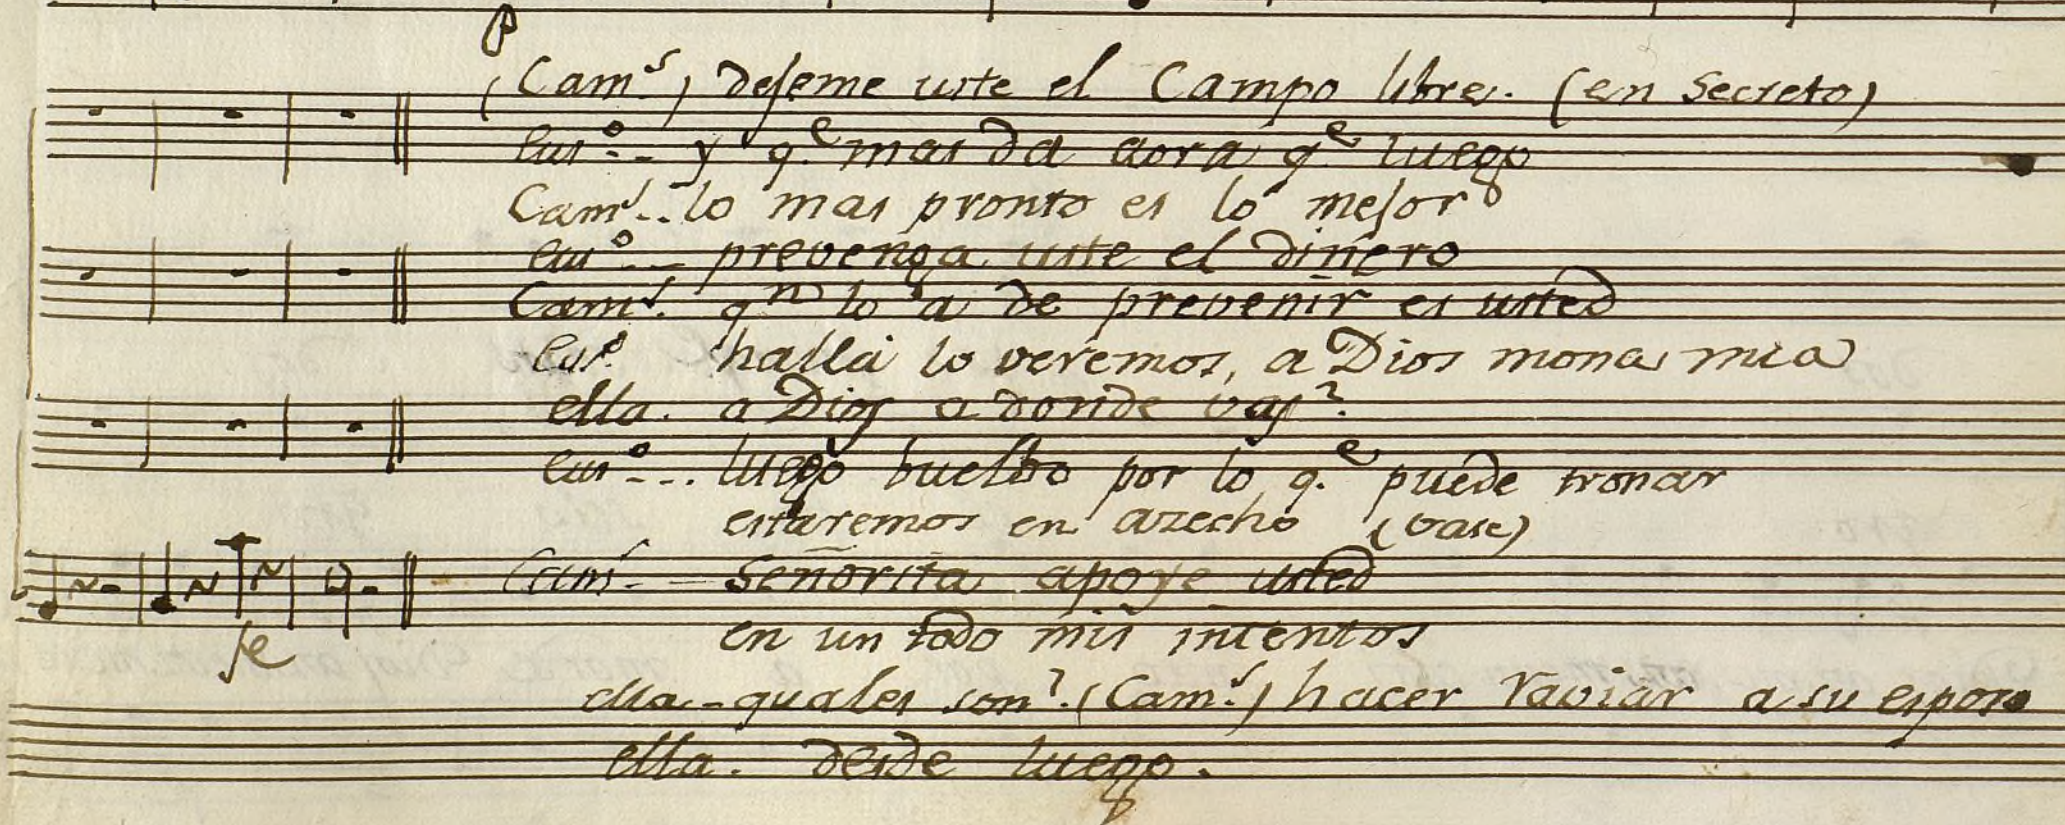 P
(Cam.s) dejeme uste el Campo libre. (en secreto)
Eus.o -- y q.e mas da aora q.e luego
Cam.s -- lo mas pronto es lo mejor
Eus.o -- prevenga uste el dinero
Cam.s q.n lo a de prevenir es usted
Eus.o halla lo veremos, a Dios mona mia
ella. a Dios a donde vas?
Eus.o --. luego buelbo por lo q.e puede tronar
estaremos en azecho (vase)
Cam.s - Señorita apoye usted
en un todo mis intentos
fe
ella - quales son?. (Cam.s) hacer raviar a su esposo
ella. desde luego.